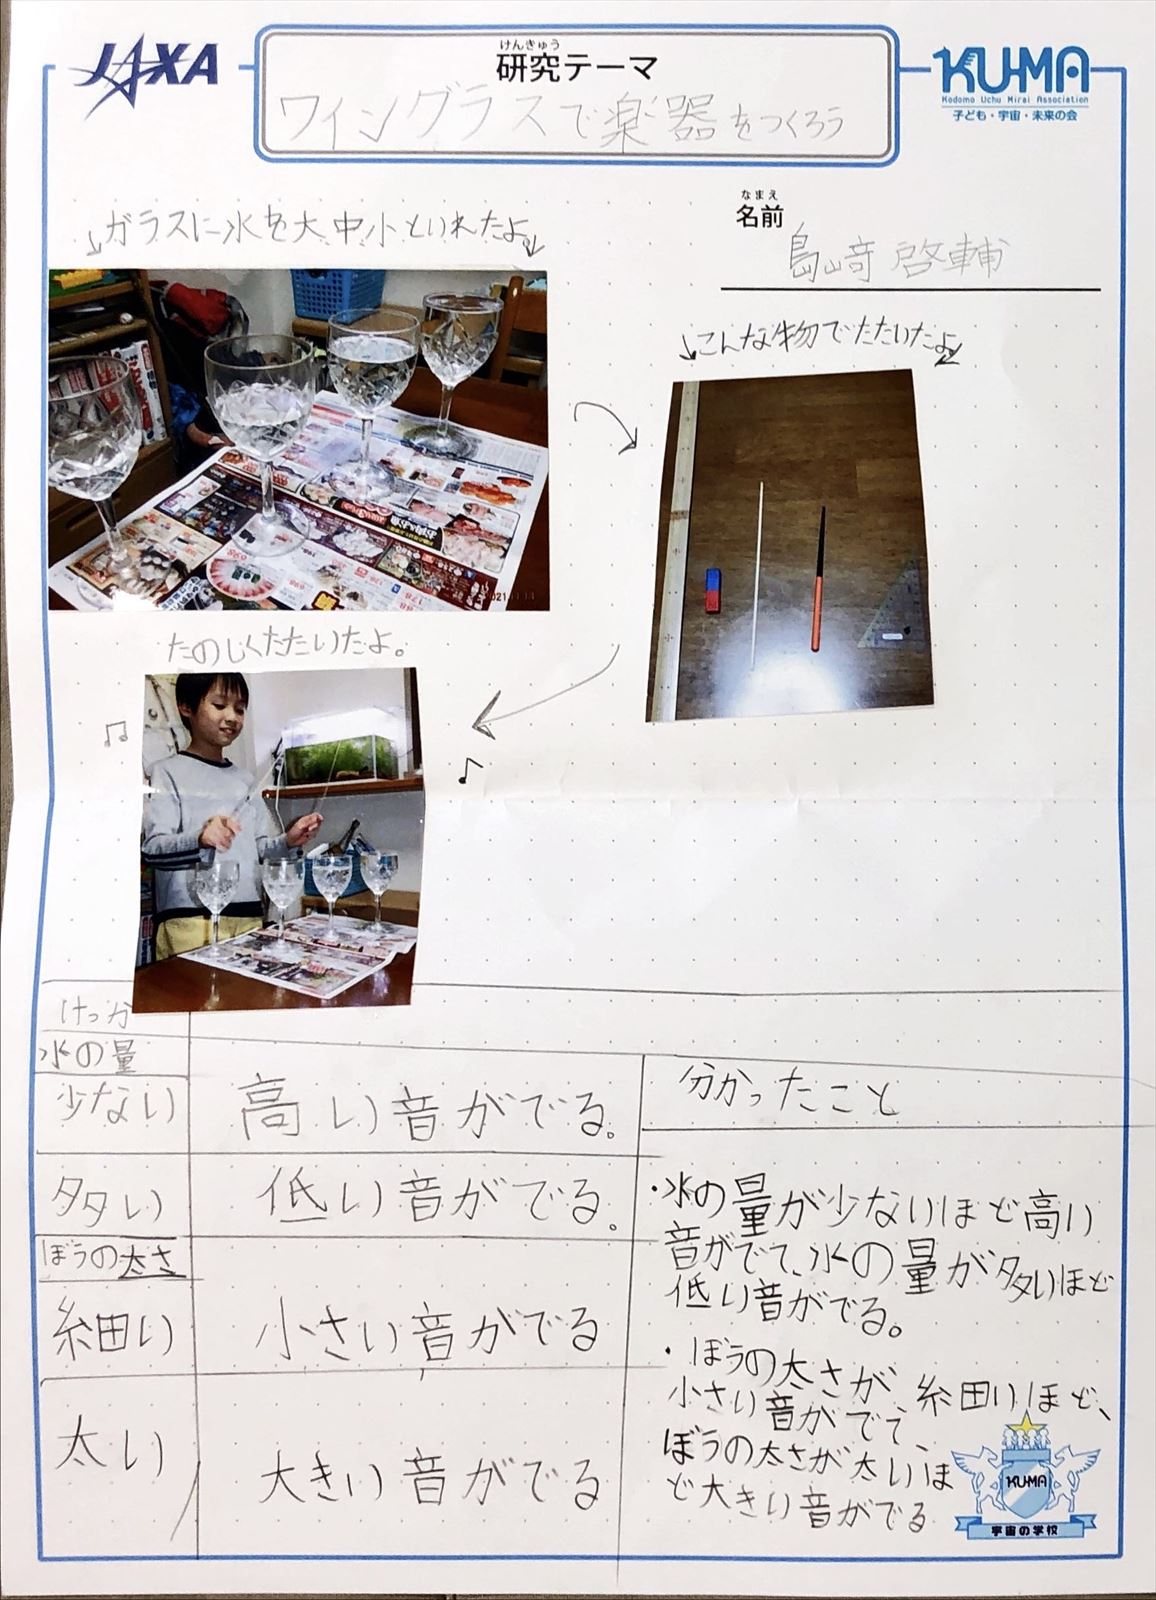 JAXA
けんきゅう
研究テーマ
ワイングラスで楽器をつくろう
KUMA
Kodomo Uchu Mirai Association
子ども・宇宙・未来の会
なまえ
名前
島崎 啓輔
ガラスに水を大中小といれたよ。
こんな物でたたいたよ
たのしくたたいたよ。
けっか
水の量
少ない
高い音がでる。
多い
低い音がでる。
ぼうの太さ
細い
小さい音がでる
太い
大きい音がでる
分かったこと
・水の量が少ないほど高い
音がでて、水の量が多いほど
低い音がでる。
・ぼうの太さが細いほど、
小さい音がでて、
ぼうの太さが太いほ
ど大きい音がでる
KUMA
宇宙の学校